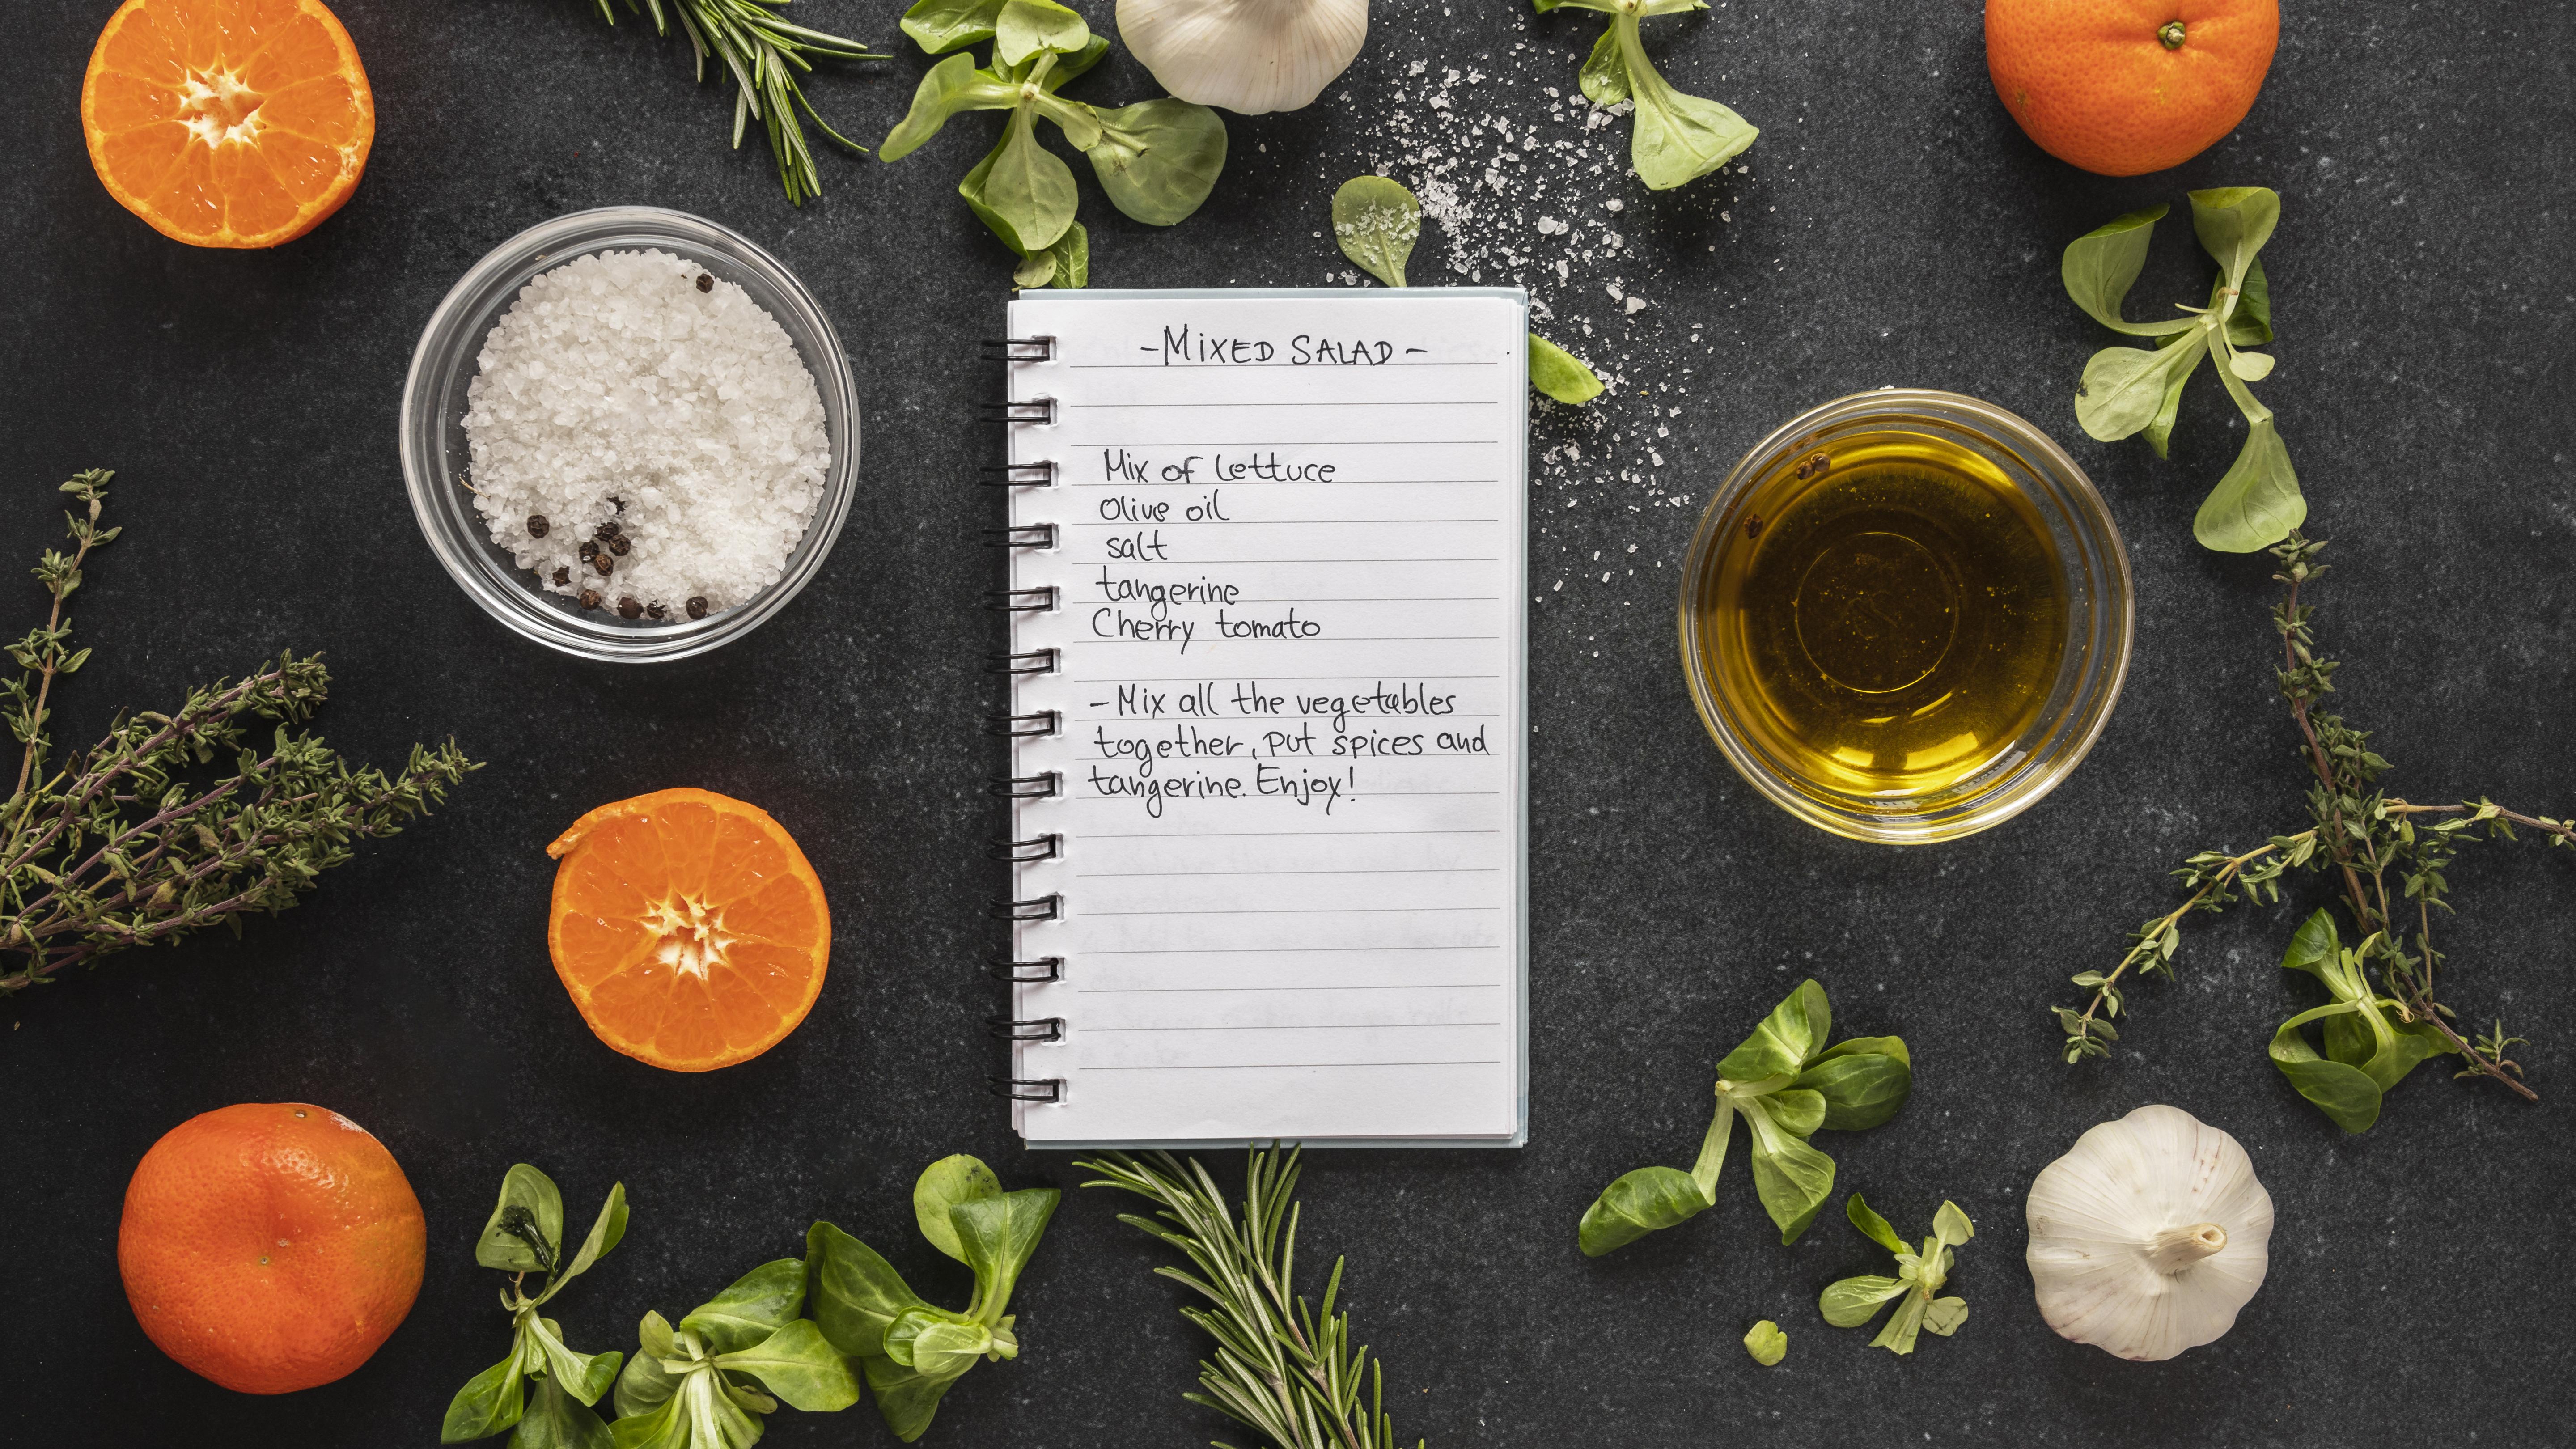 -MIXED SALAD-
Mix of lettuce
Olive oil
salt
tangerine
Cherry tomato
-Mix all the vegetables
together, put spices and
tangerine. Enjoy!